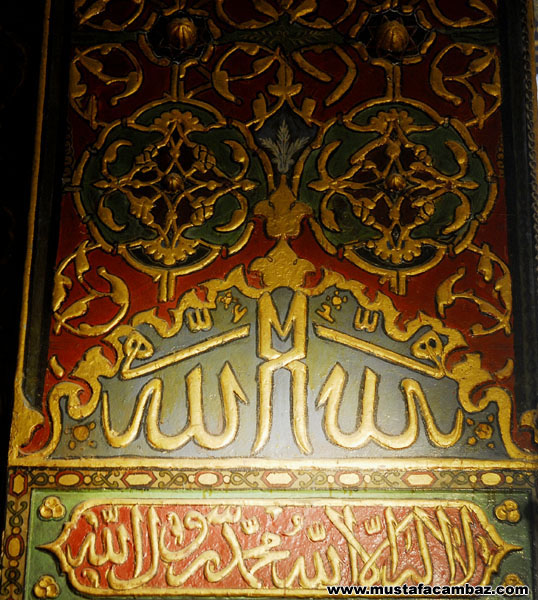 الله
لا اله الا الله محمد رسول الله
www.mustafacambaz.com